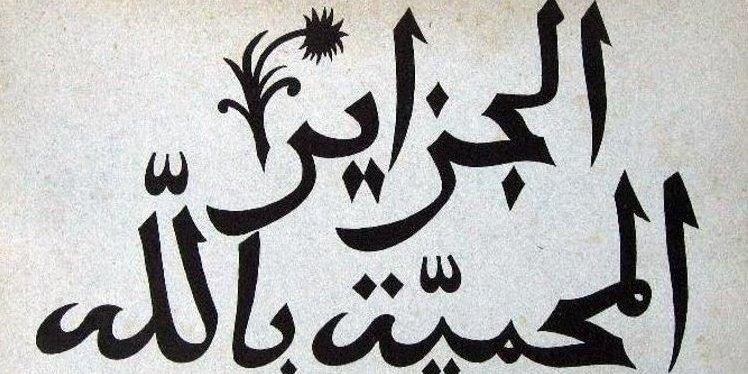 الجزاير
المحميّة باللّه